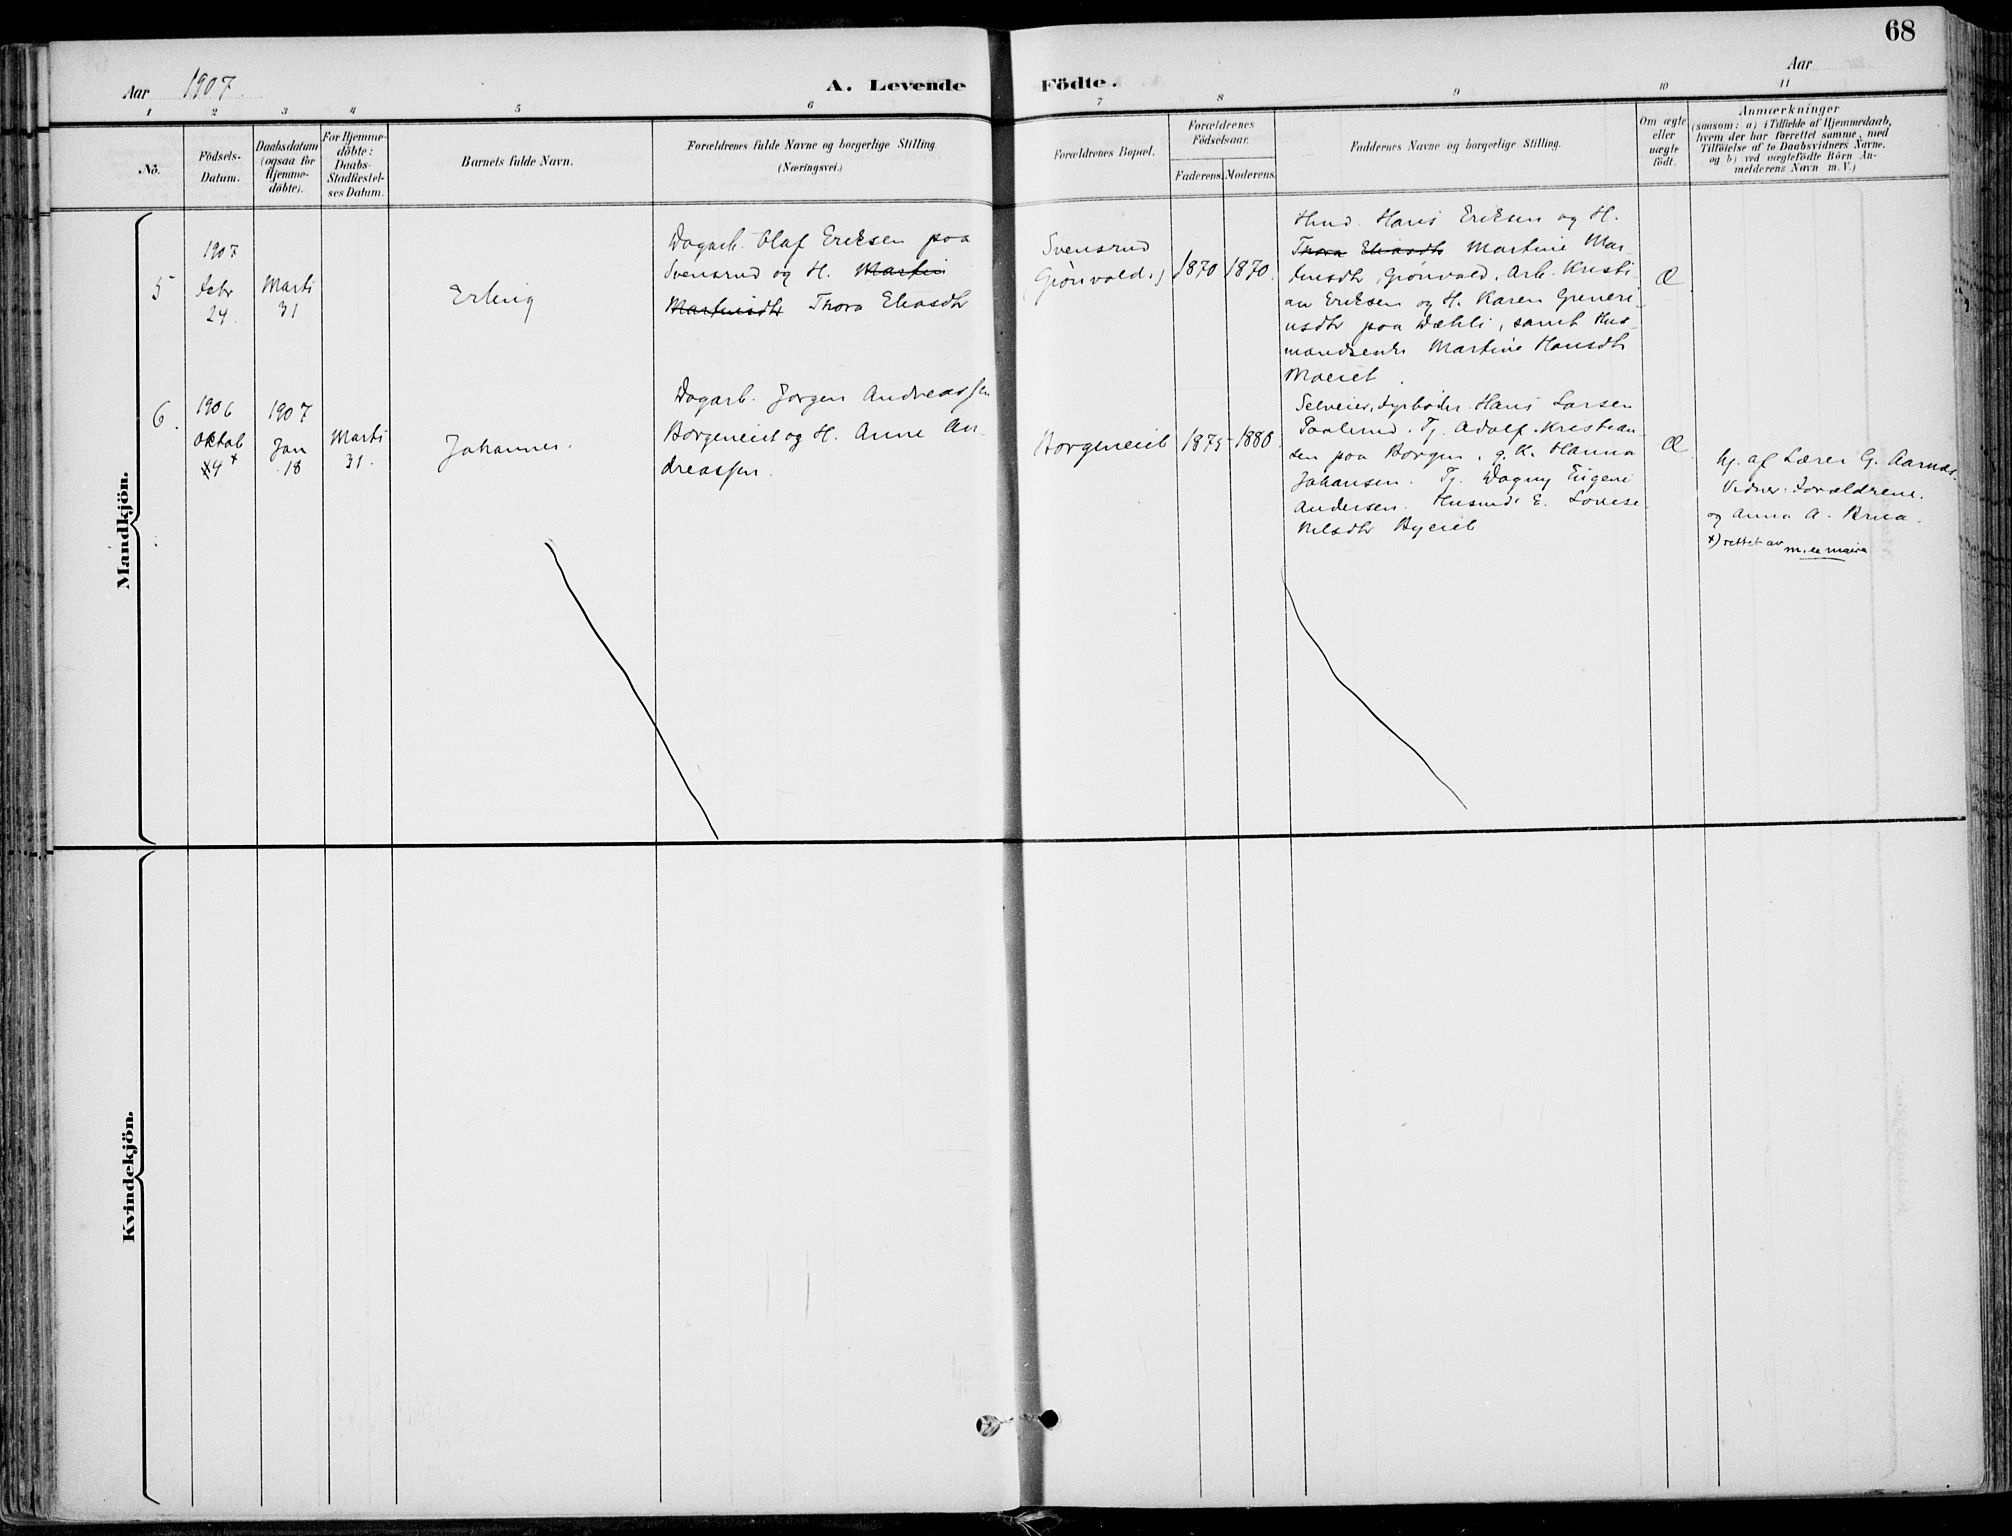 68
Aar 1907.
A. Levende Födte.
Aar
1 2 3 4 5 6 7 8 9 10 11
No.
Födsels-
Datum.
Daabsdatum
(ogsaa for
Hjemme-
döbte).
For Hjemme-
döbte:
Daabs-
Stadfæstel-
ses Datum.
Barnets fulde Navn.
Forældrenes fulde Navne og borgerlige Stilling.
(Næringsvei.)
Forældrenes Bopæl.
Forældrenes
Födselsaar.
Faderens.
Moderens.
Faddernes Navne og borgerlige Stilling.
Om ægte
eller
uægte
födt.
Anmærkninger
(saasom: a) i Tilfælde af Hjemmedaab,
hvem der har forrettet samme, med
Tilföielse af to Daabsvidners Navne.
og b) ved uægtefödte Börn An-
melderens Navn m. V.)
Mandkjön.
5
1907
Febr
24.
Marts
31
Erling
Dagarb. Olaf Eriksen paa
Svensrud og H. Martin
Martinsdtr Thora Eliasdtr
Svensrud
(Grönvold)
1870
1870.
Hmd. Hans Eriksen og H.
Thora Eliasdtr Martine Mar-
tinsdtr, Grönvold, Arb. Kristi-
an Eriksen og H. Karen Greneri-
usdtr paa Dæhli, samt Hus-
mandsenke Martine Hansdtr
Moeiet.
Æ
6.
1906
Oktob
24 +
1907
Jan
18
Marts
31.
Johannes.
Dagarb. Jørgen Andreassen
Borgeneiet og H. Anne An-
dreassen.
Borgeneiet
1875
1880.
Selveier, Dyrlæge Hans Larsen
Paalerud. Tj. Adolf Kristian-
sen paa Borgen, g. K. Hanna
Johansen. Tj. Dagny Eugenie
Andersen. Husmd. E. Lovise
Nilsdtr Byeiet
Æ
Hj. af Lærer G. Aarnæs
Vidner: Forældrene.
og Anna A. Brua.
+) rettet av
Kvindekjön.